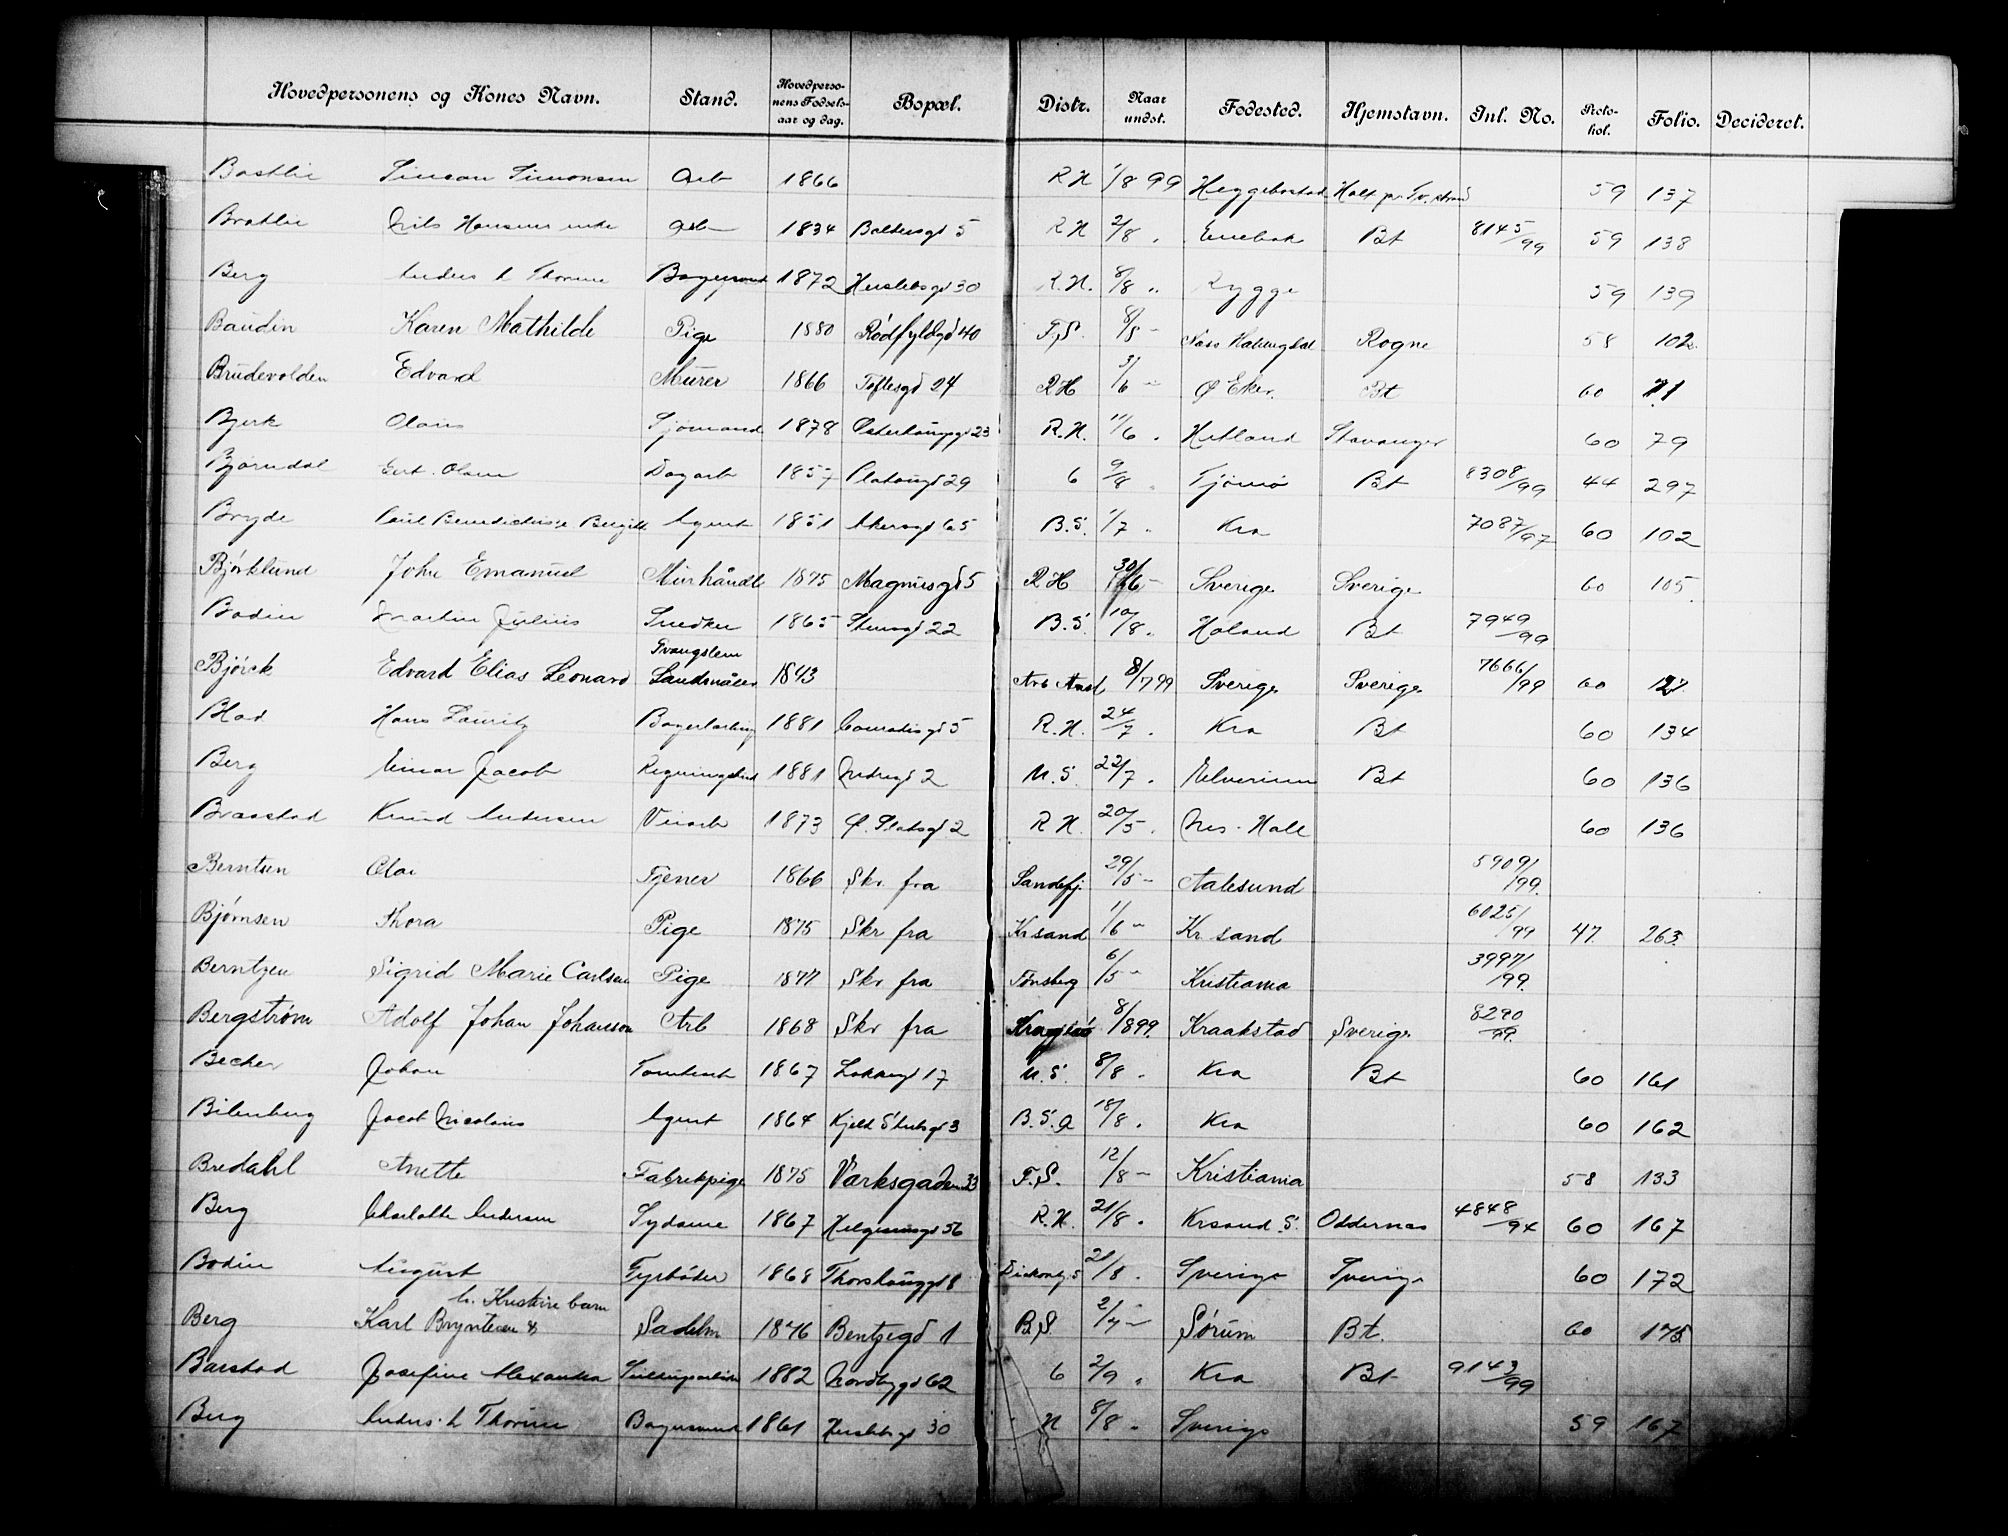 Hovedpersonens og Kones Navn. Stand. Hovedpersonens Fødselsaar og dag. Bopæl. Distr. Naar undst. Fødested. Hjemstavn. Inl. No. Protokol. Folio. Decideret.
Bastlie Simonsen Arb 1866 R H 1/8 99 Heggebostad Holt 59 137
Bratlie Nils Hansens enke Arb 1834 Baldersgd 5 R H 2/8 " Enebak Bt 8145/99 59 138
Berg Anders h Thorine Bogesvend 1872 Herslebsgd 30 R.H. 8/8 " Rygge 59 139
Baudin Karen Mathilde Pige 1880 Rødfyldgd 40 F.S. 8/8 - Næs Hallingdal Rogne 58 102
Brudevolden Edvard Murer 1866 Toftesgd 24 R H 3/6 - Ø Eker. Bt 60 71
Bjerk Olaus Sjømand 1878 Østerhausgd 23 R.H. 11/6 " Hetland Stavanger 60 79
Bjørndal Olsen Dagarb 1857 Platousgd 29 6 9/8 " Tjømø Bt 8308/99 44 297
Bryde Paul Benedictus Agent 1851 Akersgd 65 B.S. 1/7 " Kra 7087/97 60 102
Bjørklund John Emanuel Murhåndl 1875 Magnusgd 5 R H 30/6 - Sverige Sverige 60 105
Bodin Martin Julius Snedker 1865 Stensgd 22 B.S. 10/8 " Høland Bt 7949/99
Bjørck Edvard Elias Leonard Tvangslem Landmåler 1843 Arb Anst 8/7 99 Sverige Sverige 7666/99 60 127
Blad Hans Lauritz Bagerlærling 1881 Conradisgd 5 R.H. 24/7 " Kra Bt 60 134
Berg Einar Jacob 1881 Nedregd 2 U.S. 22/7 " Elverum Bt 60 136
Braastad Knud Andersen Veiarb 1873 Ø. Slotsgd 2 R H. 20/5 " Nes - Hall 60 136
Berntsen Olai Tjener 1866 Skr. fra Sandefj. 29/5 - Aalesund 5909/99.
Bjørnsen Thora Pige 1875 Skr fra Krsand 1/6 - Kr sand 6025/99 47 263
Berntzen Sigrid Marie Carlsen Pige 1877 Skr fra Tønsberg 6/5 - Kristiania 3997/99.
Bergstrøm Adolf Johan Johanson Arb 1868 Skr fra Kragerø 8/8 99. Kraakstad Sverige 8290/99.
Becker Johan Tomtearb 1867 Lakkegd 17 U.S. 8/8 " Kra Bt 60 161
Bilenberg Jacob Nicolais Agent 1864 Kjeld Stubsgd 3 B.S. a 18/8 " Kra 60 162
Bredahl Anette Fabrikpige 1875 Værksgaden 33 F.S. 12/8 - Kristiania 58 133
Berg Charlotte Andersen Sydame 1867 Helgesensgd 56 R.H. 21/8 " Krsand S. Oddernes 4848/94 60 167
Bodin August Fyrbøder 1868 Thorshauggd 8 21/8 " Sverige Sverige 60 172
Berg Karl Bryntesen & h. Kristine barn Sadelm 1876 Bentzegd 1 B.S. 2/7 - Sørum Bt. 60 175
Barstad Josefine Alexandra 1882 Nordbygd 62 6 2/9 " Kra Bt 9143/99
Berg Anders h Thorine Bogesvend 1861 Herslebsgd 30 H 8/8 " Sverige 59 167